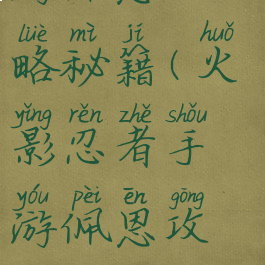 lüè mì jí huǒ
略秘籍(火
yǐng rěn zhě shǒu
影忍者手
yóu pèi ēn gōng
游佩恩攻